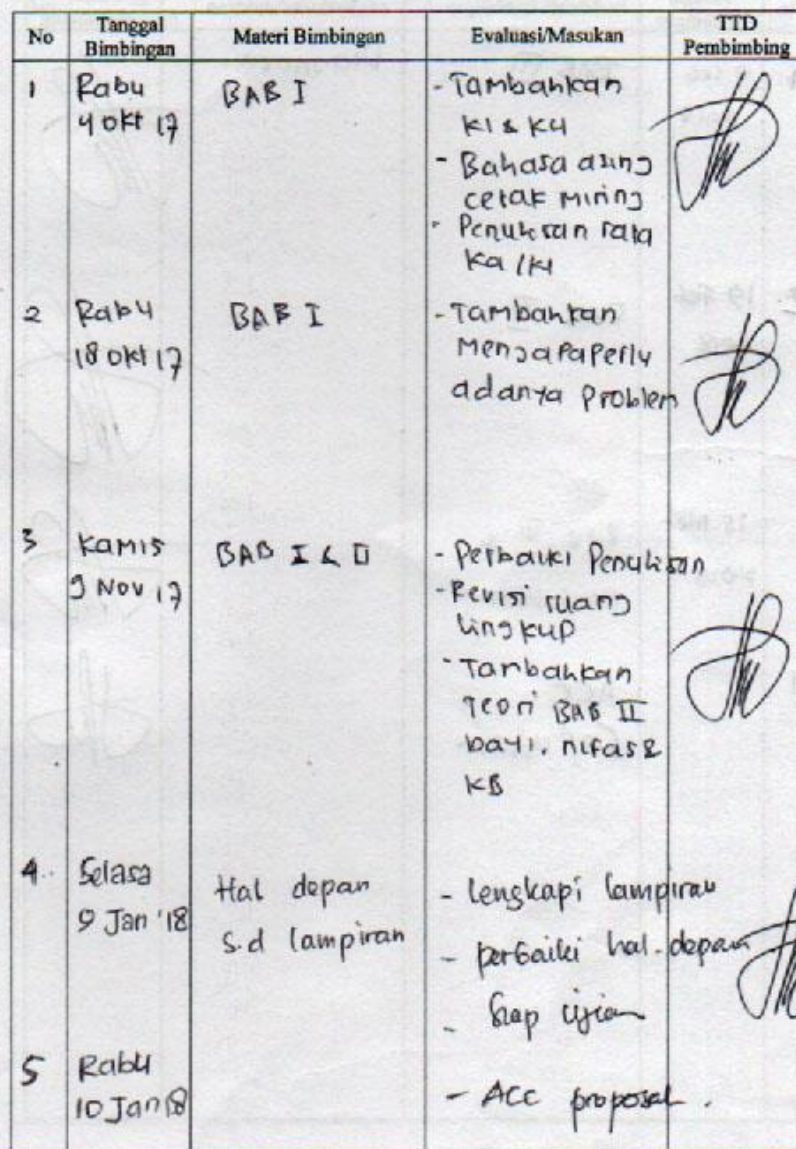 No Tanggal Bimbingan Materi Bimbingan Evaluasi/Masukan TTD Pembimbing
1 Rabu BAB I - Tambahkan
4 Okt 17 K1 & K4
- Bahasa asing
cetak miring
- Penulisan rata
Ka/Ki
2 Rabu BAB I - Tambahkan
18 Okt 17 Mengapa perlu
adanya problem
3 Kamis BAB I & II - Perbaiki Penulisan
9 Nov 17 - Revisi ruang
lingkup
- Tambahkan
Teori BAB II
bayi, nifas &
KB
4. Selasa Hal depan - lengkapi lampiran
9 Jan '18 s.d lampiran - perbaiki hal. depan
- Siap ujian
5 Rabu
10 Jan 18 - ACC proposal.